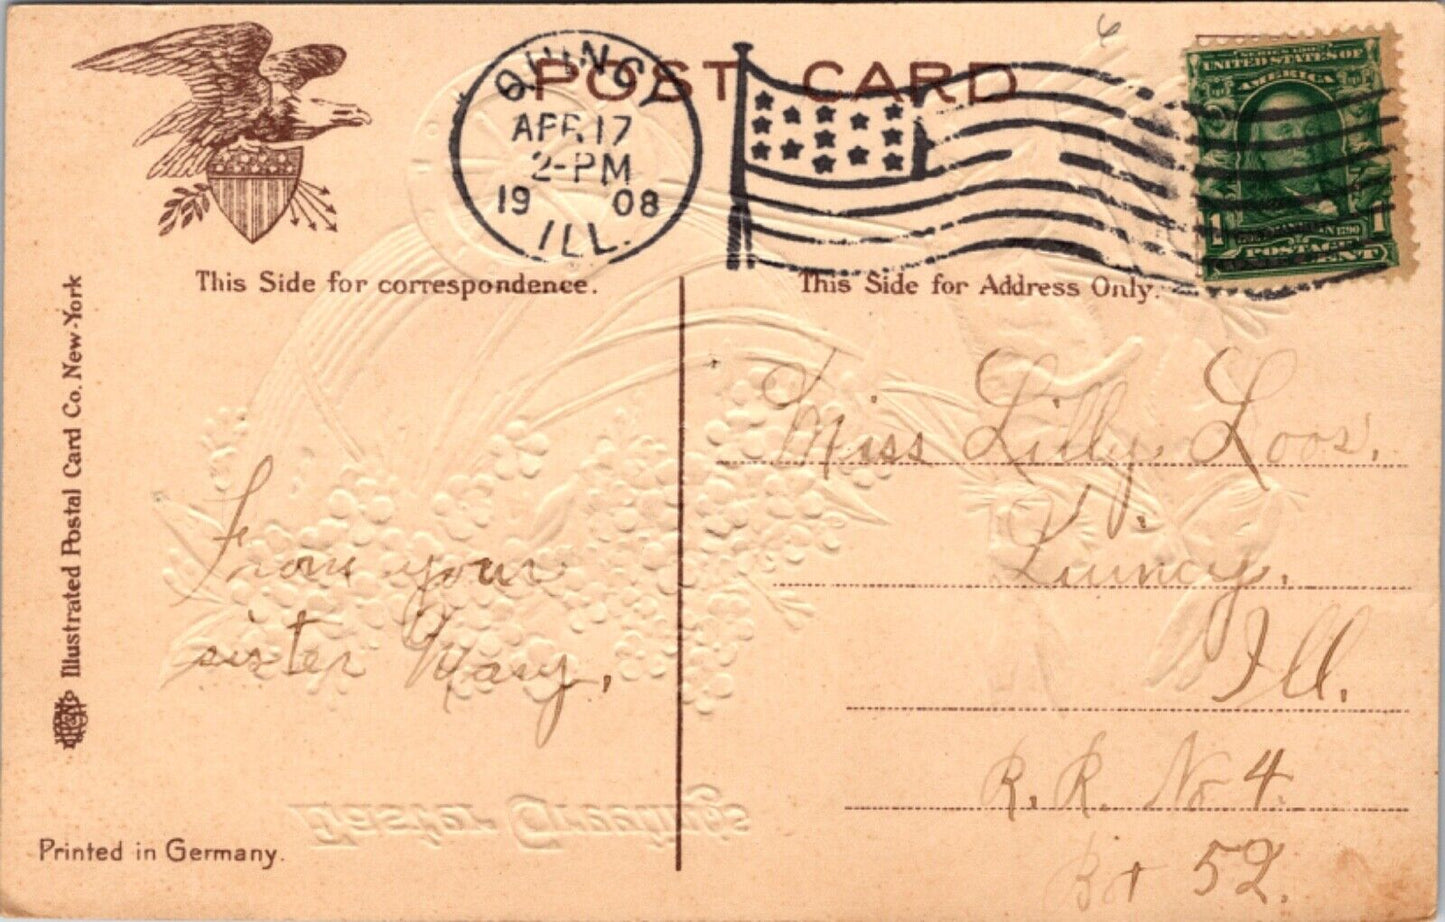 POST CARD
QUINCY
APR 17
2-PM
19 08
ILL.
SERIES 1902
UNITED STATES OF
AMERICA
1 1
POSTAGE
ONE CENT
This Side for correspondence.
This Side for Address Only.
Illustrated Postal Card Co. New-York
From your
sister Mary,
Miss Lilly Loos.
Quincy.
Ill.
R. R. No 4.
Box 52.
Easter Greetings
Printed in Germany.